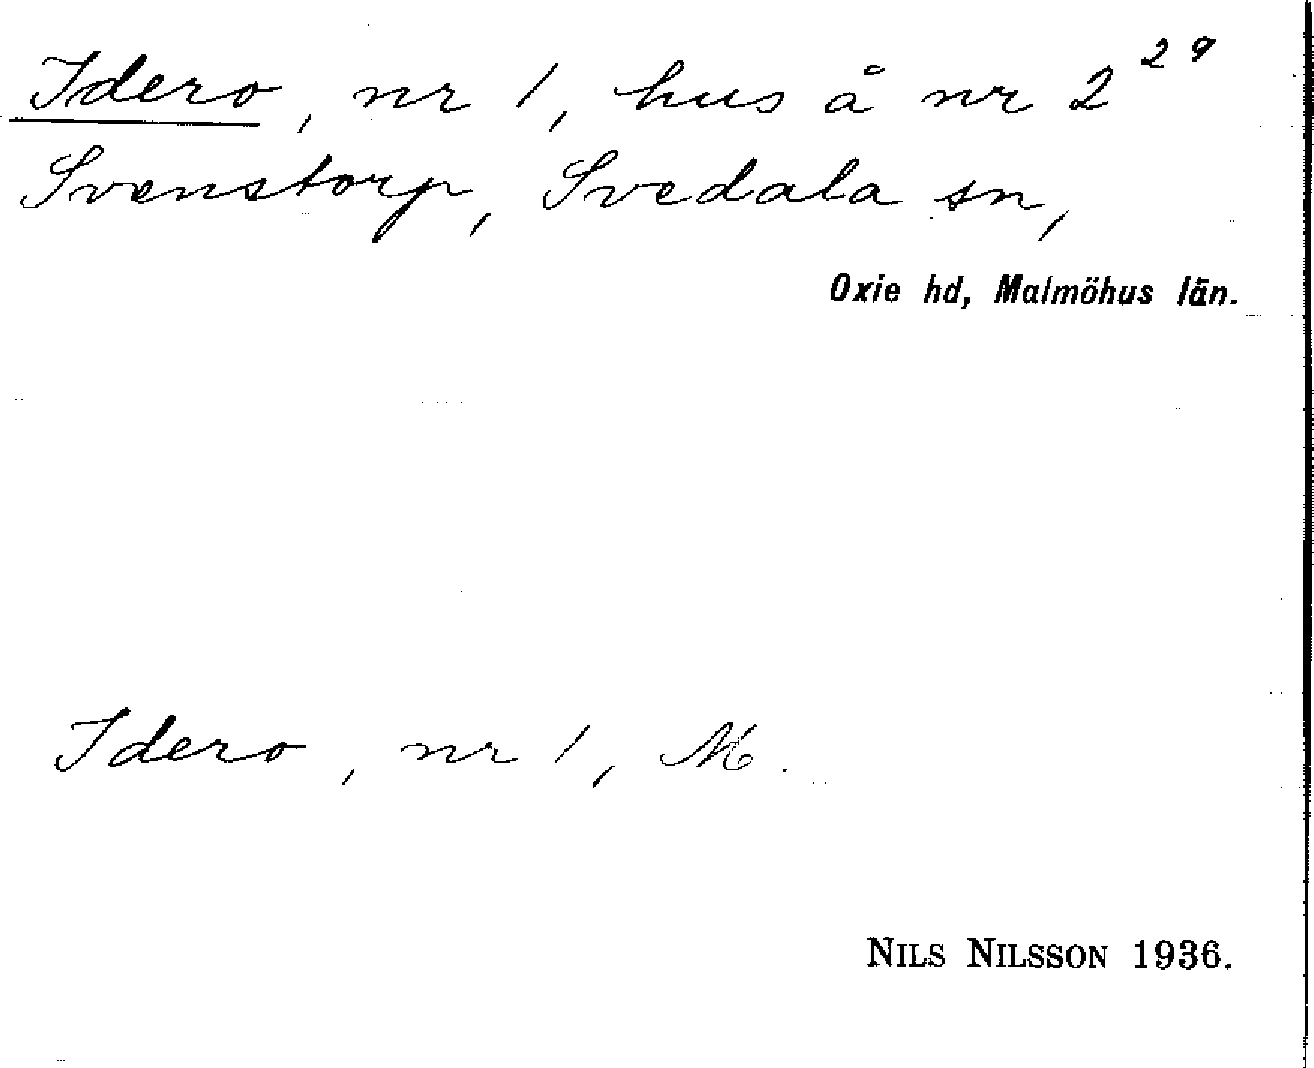 Idero, nr 1, hus å nr 2²⁹
Svenstorp, Svedala sn,
Oxie hd, Malmöhus län.
Idero, nr 1, M.
NILS NILSSON 1936.